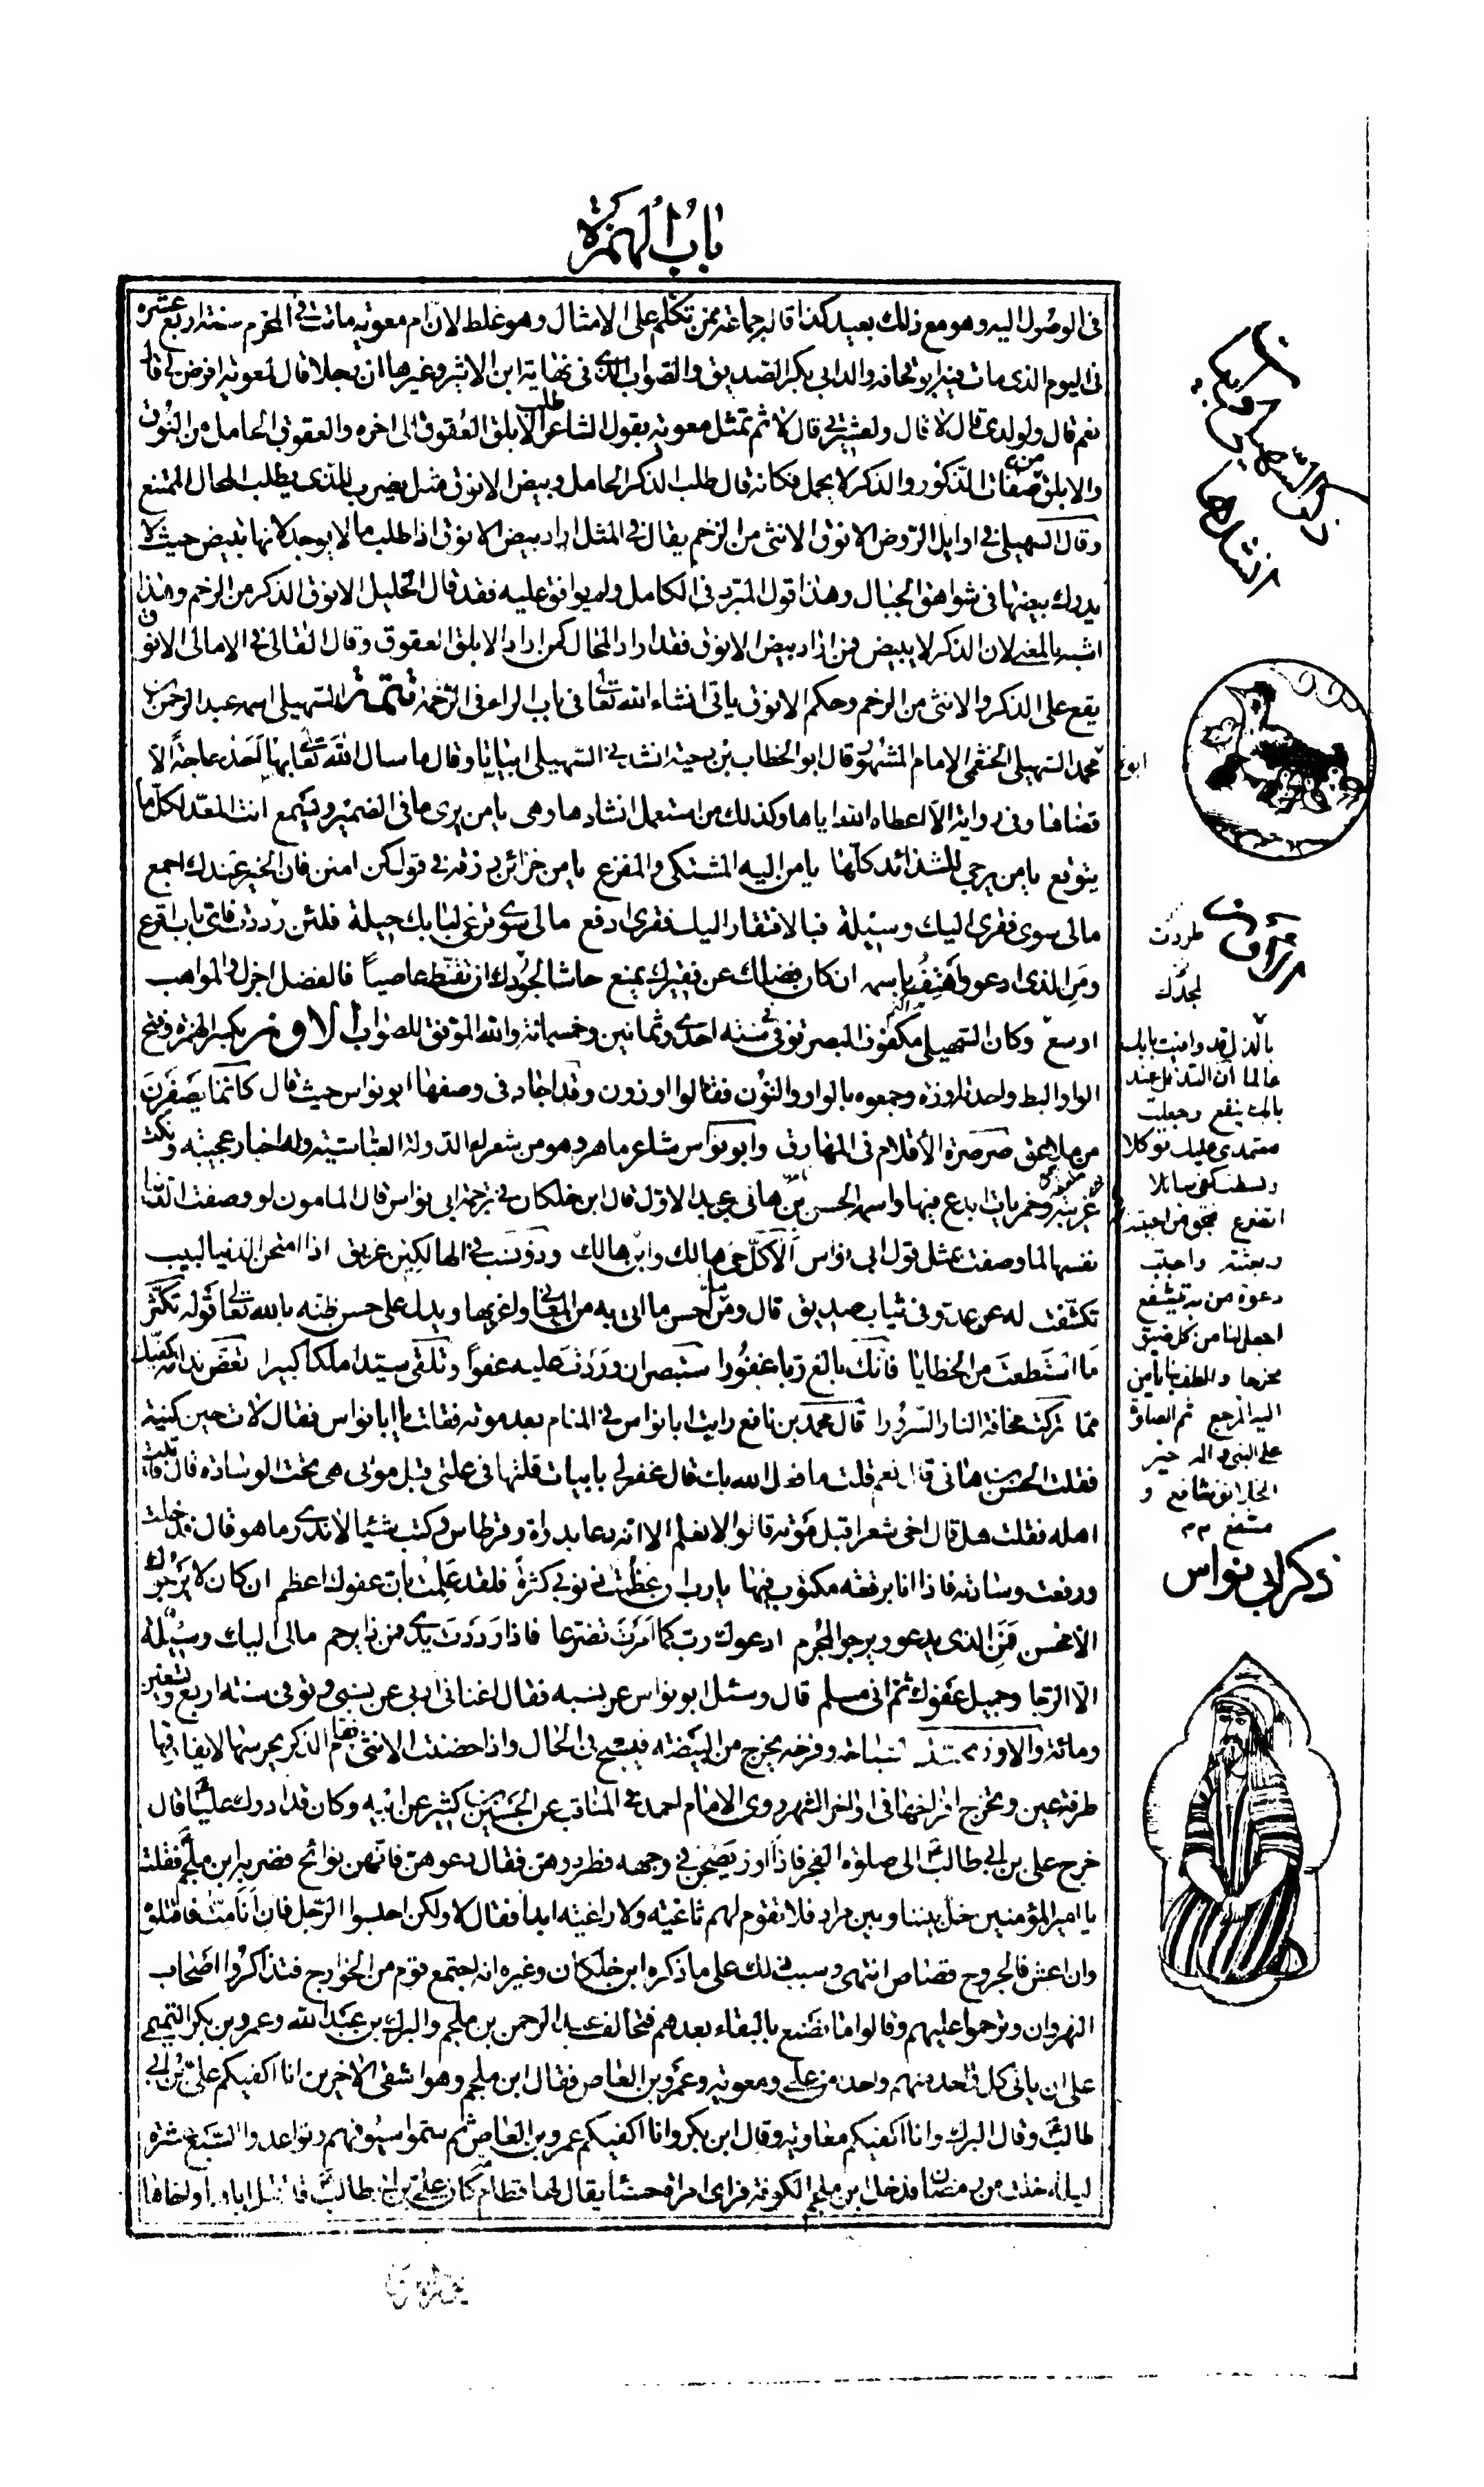 باب الهمزة
فى الوصول اليه وهو مع ذلك بعيد كذا قاله جماعة ممن تكلم على الامثال وهو غلط لان ام معوية ماتت فى المحرم سنة اربع عشرة
فى اليوم الذى مات فيه ابو قحافة والد ابى بكر الصديق والصواب الذى فى نهاية ابن الاثير وغيرها ان رجلا قال لمعوية افرض لى قال
نعم قال ولولدى قال لا قال ولعشيرتى قال لا ثم تمثل معوية بقول الشاعر طلب الابلق العقوق الى اخره والعقوق الحامل من النوق
والابلق من صفات الذكور والذكر لا يحمل فكانه قال طلب الذكر الحامل وبيض الانوق مثل يضرب للذى يطلب المحال الممتنع
وقال السهيلى فى اوايل الروض الانوق الانثى من الرخم يقال فى المثل اراد بيض الانوق اذا طلب ما لا يوجد لانها تبيض حيث لا
يدرك بيضها فى شواهق الجبال وهذا قول المبرد فى الكامل ولم يوافق عليه فقد قال الخليل الانوق الذكر من الرخم وهذا
اشبه بالمعنى لان الذكر لا يبيض فمن اراد بيض الانوق فقد اراد المحال كمن اراد الابلق العقوق وقال القالى فى الامالى الانوق
يقع على الذكر والانثى من الرخم وحكم الانوق ياتى انشاء الله تعالى فى باب الراء فى الرخمة تتمة السهيلى اسمه عبد الرحمن بن
محمد السهيلى الخثعمى الامام المشهور قال ابو الخطاب بن دحية انشدنى السهيلى ابياتا وقال ما سال الله تعالى بها احد حاجة الا
قضاها وفى رواية الا اعطاه الله اياها وكذلك من استعمل انشادها وهى يا من يرى ما فى الضمير ويسمع انت المعد لكل ما
يتوقع يا من يرجى للشدائد كلها يا من اليه المشتكى والمفزع يا من خزائن رزقه فى قول كن امنن فان الخير عندك اجمع
مالى سوى فقرى اليك وسيلة فبالافتقار اليك فقرى ادفع مالى سوى قرعى لبابك حيلة فلئن رددت فاى باب اقرع
ومن الذى ادعو واهتف باسمه ان كان فضلك عن فقيرك يمنع حاشا لجودك ان تقنط عاصيا فالفضل اجزل والمواهب
اوسع وكان السهيلى مكفوف البصر توفى فى سنة احدى وثمانين وخمسمائة والله الموفق للصواب الاوز بكسر الهمزة وفتح
الواو البط واحدته اوزة وجمعوه بالواو والنون فقالوا اوزون وقد اجاد فى وصفها ابو نواس حيث قال كانما يصفرن
من ملاعق صرصرة الاقلام فى المهارق وابو نواس شاعر ماهر وهو من شعراء الدولة العباسية وله اخبار عجيبة ونكت
غريبة وخمريات ابدع فيها واسمه الحسن بن هانى بن عبد الاول قال ابن خلكان فى ترجمة ابى نواس قال المامون لو وصفت الدنيا
نفسها لما وصفت بمثل قول ابى نواس الا كل حى هالك وابن هالك وذو نسب فى الهالكين عريق اذا امتحن الدنيا لبيب
تكشفت له عن عدو فى ثياب صديق قال ومن احسن ما اتى به من المعانى واغربها ويدل على حسن ظنه بالله تعالى قوله تكثر
ما استطعت من الخطايا فانك بالغ ربا غفورا ستبصر ان وردت عليه عفوا وتلقى سيدا ملكا كبيرا تعض ندامة كفيك
مما تركت مخافة النار السرورا قال محمد بن نافع رايت ابا نواس فى المنام بعد موته فقلت يا ابا نواس فقال لات حين كنية
فقلت الحسن بن هانى قال نعم قلت ما فعل الله بك قال غفر لى بابيات قلتها فى علتى قبل موتى هى تحت الوسادة قال فاتيت
اهله فقلت هل قال اخى شعرا قبل موته قالوا لا نعلم الا انه دعا بدواة وقرطاس وكتب شيئا لا ندرى ما هو قال فدخلت
ورفعت وسادته فاذا انا برقعة مكتوب فيها يا رب ان عظمت ذنوبى كثرة فلقد علمت بان عفوك اعظم ان كان لا يرجوك
الا محسن فمن الذى يدعو ويرجو المجرم ادعوك رب كما امرت تضرعا فاذا رددت يدى فمن ذا يرحم مالى اليك وسيلة
الا الرجا وجميل عفوك ثم انى مسلم قال وسئل ابو نواس عن نسبه فقال اغنانى ادبى عن نسبى وتوفى سنة اربع وتسعين
ومائة والاوز يحب السباحة وفرخه يخرج من البيضة فيسبح فى الحال واذا حضنت الانثى قام الذكر يحرسها لا يفارقها
طرفة عين وتخرج افراخها فى اواخر الشهر روى الامام احمد فى المناقب عن الحسين بن كثير عن ابيه وكان قد ادرك عليا قال
خرج على بن ابى طالب الى صلوة الفجر فاذا اوز يصحن فى وجهه فطردوهن فقال دعوهن فانهن نوائح فضربه ابن ملجم فقلت
يا امير المؤمنين خل بيننا وبين مراد فلا تقوم لهم ثاغية ولا راغية ابدا فقال لا ولكن احبسوا الرجل فان انا مت فاقتلوه
وان اعش فالجروح قصاص انتهى وسبب ذلك على ما ذكره ابن خلكان وغيره انه اجتمع قوم من الخوارج فتذاكروا اصحاب
النهروان وترحموا عليهم وقالوا ما نصنع بالبقاء بعدهم فتحالف عبد الرحمن بن ملجم والبرك بن عبد الله وعمرو بن بكر التميمى
على ان ياتى كل واحد منهم واحدا من على ومعوية وعمرو بن العاص فقال ابن ملجم وهو اشقى الاخرين انا اكفيكم على بن ابى
طالب وقال البرك وانا اكفيكم معاوية وقال ابن بكر وانا اكفيكم عمرو بن العاص ثم سموا سيوفهم وتواعدوا لسبع عشرة
ليلة خلت من رمضان فدخل ابن ملجم الكوفة فراى امراة حسنا يقال لها قطام كان على بن ابى طالب قد قتل اباها واخاها
ذكر السهيلى
انشادها
طردت
لجدك
بالذل قد وافيت بابك
عالما ان التذلل عند
بابك ينفع وجعلت
معتمدى عليك توكلا
وبسطت كفى سائلا
اتضرع فبحق من احببته
وبعثته واجبت
دعوة من به يتشفع
اجعل لنا من كل ضيق
مخرجا والطف بنا يا من
اليه المرجع ثم الصلوة
على النبى واله خير
الخلائق شافع و
مشفع
ذكر ابى نواس